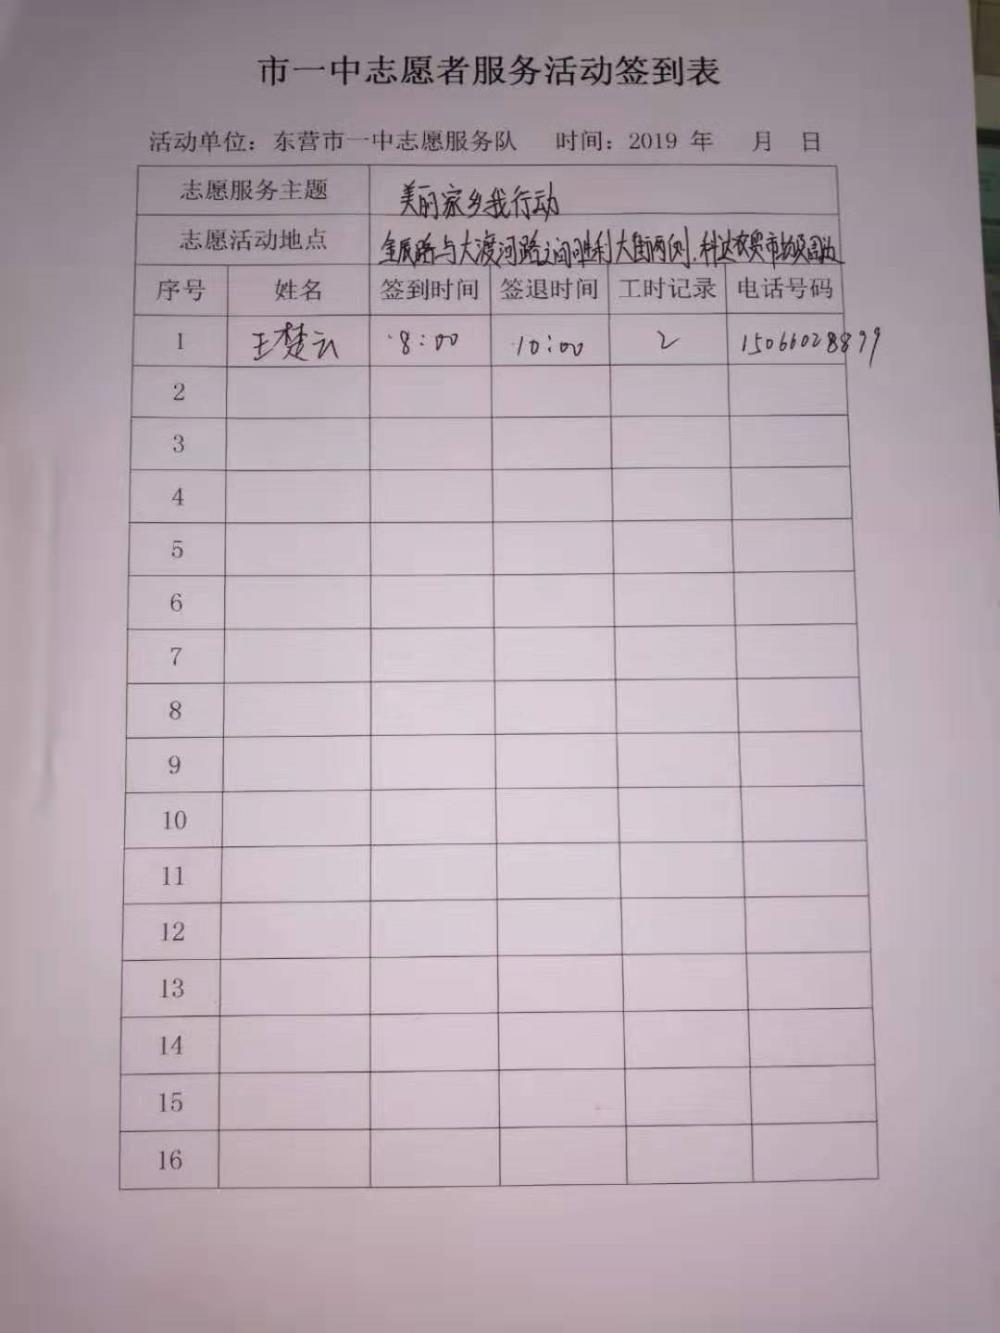 市一中志愿者服务活动签到表
活动单位：东营市一中志愿服务队 时间：2019 年 月 日
志愿服务主题 美丽家乡我行动
志愿活动地点 金辰路与大渡河路之间胜利大街两侧、科达农贸市场及周边
序号 姓名 签到时间 签退时间 工时记录 电话号码
1 王楚云 8:00 10:00 2 15066028899
2
3
4
5
6
7
8
9
10
11
12
13
14
15
16